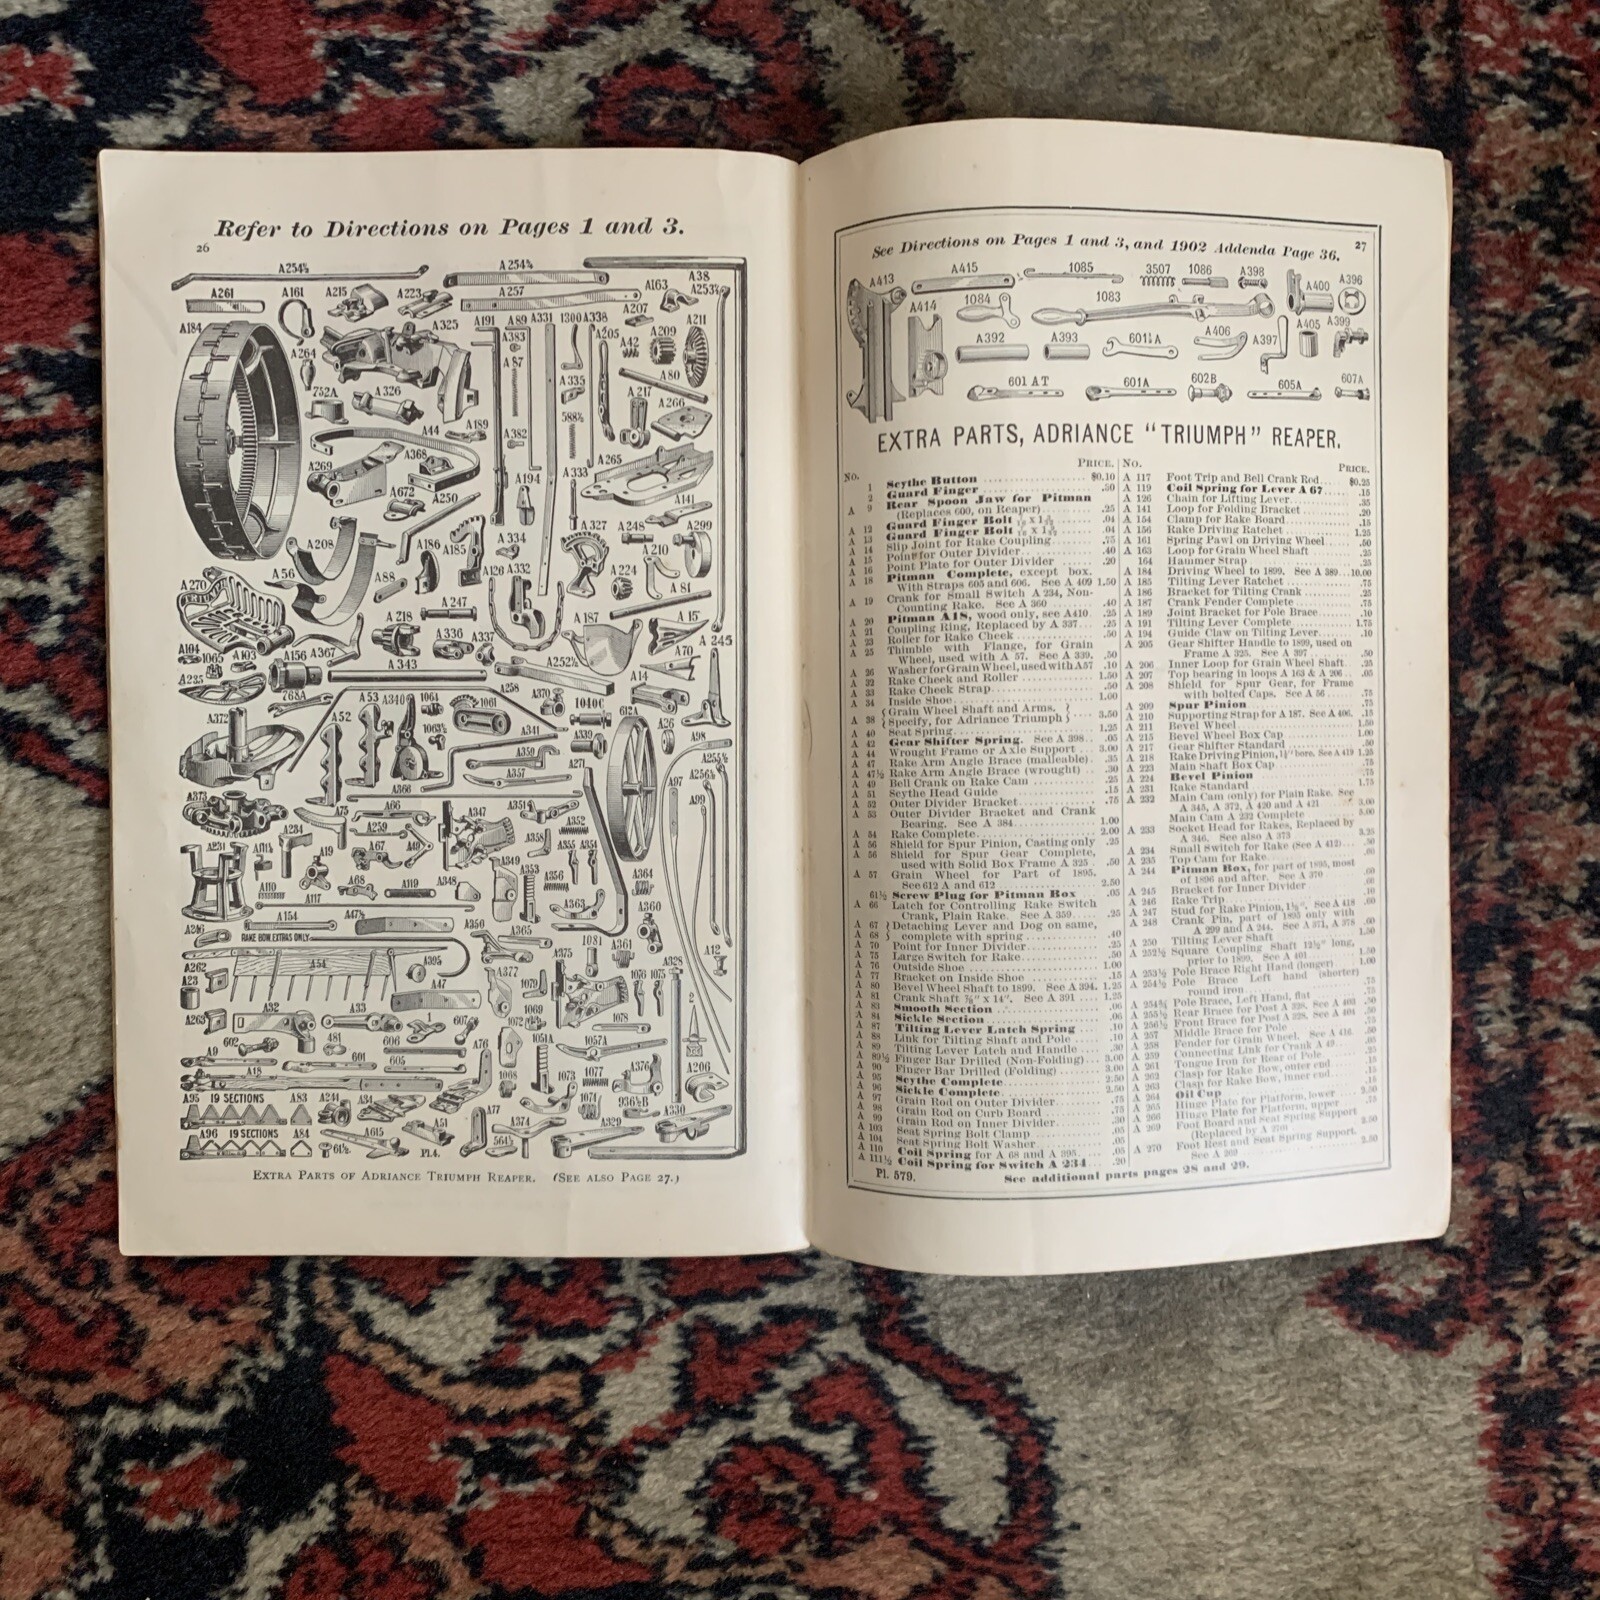 Refer to Directions on Pages 1 and 3.
26
A254⅝ A254¾ A38
A261 A161 A215 A223 A257 A163 A253½
A184 A325 A191 A89 A331 1300 A338 A207
A383 A205 A42 A209 A211
A264 A87 A80
752A A326 A335 A217 A266
A44 A189 A382 588½
A269 A368 A333 A265
A672 A250 A194 A141
A208 A327 A248 A299
A56 A186 A185 A334 A210
A270 A88 A126 A332 A224 A81
A218 A247 A187 A15
A104 1065 A103 A367 A336 A337 A245
A156 A343 A252½ A70
A235 768A A258 A14
A372 A52 A53 A340 1064 1061 A370 1040C 612A A26
1063½ A341 A339 A98
A359 A271 A255½
A357 A97 A256½
A373 A366 A99
A75 A66 A347 A351½
A234 A259 A352
A231 A111½ A19 A67 A49 A358 A355 A354
A349
A110 A68 A119 A348 A353 A356 A364
A117 A363 A360
A154 A47½ A350
A246 RAKE BOW, EXTRAS ONLY A365 1081 A361 A12
A262 A54 A395 A375 A328
A23 A377 1079 1076 1075
A47 2
A263 A32 A33 1 607 1072 1069 1078
602 481 606 1051A 1057A
A9 601 605 A76
A18 1068 1073 1077 A376 A206
A95 19 SECTIONS A83 A244 A34 1074 936½B
A77 A374 A330
A96 19 SECTIONS A84 61½ A615 A51 564½ A329
PL.4.
EXTRA PARTS OF ADRIANCE TRIUMPH REAPER. (SEE ALSO PAGE 27.)
See Directions on Pages 1 and 3, and 1902 Addenda Page 36.
27
A413 A415 1085 3507 1086 A398 A400 A396
A414 1084 1083 A405 A399
A392 A393 601½A A406 A397
601 AT 601A 602B 605A 607A
EXTRA PARTS, ADRIANCE "TRIUMPH" REAPER.
No. PRICE.
1 Scythe Button $0.10
2 Guard Finger .50
A 9 Rear Spoon Jaw for Pitman
(Replaces 600, on Reaper) .25
A 12 Guard Finger Bolt .04
A 13 Guard Finger Bolt .04
A 14 Slip Joint for Rake Coupling
A 15 Point for Outer Divider .40
A 16 Point Plate for Outer Divider .20
A 18 Pitman Complete, except box.
With Straps 605 and 606. See A 409 1.50
A 19 Crank for Small Switch A 234, Non-
Counting Rake. See A 360 .40
A 20 Pitman A18, wood only, see A410 .25
A 21 Coupling Ring. Replaced by A 337
A 23 Roller for Rake Cheek
A 25 Thimble with Flange, for Grain
Wheel, used with A 57. See A 339. .50
A 26 Washer for Grain Wheel, used with A57 .10
A 32 Rake Cheek and Roller 1.50
A 33 Rake Cheek Strap .50
A 34 Inside Shoe 1.00
A 38 Grain Wheel Shaft and Arms.
Specify, for Adriance Triumph 3.50
A 40 Seat Spring 1.25
A 42 Gear Shifter Spring. See A 398 .05
A 44 Wrought Frame or Axle Support 3.00
A 47 Rake Arm Angle Brace (malleable) .35
A 47½ Rake Arm Angle Brace (wrought) .30
A 49 Bell Crank on Rake Cam .25
A 51 Scythe Head Guide .15
A 52 Outer Divider Bracket .75
A 53 Outer Divider Bracket and Crank
Bearing. See A 384 1.00
A 54 Rake Complete 2.00
A 56 Shield for Spur Pinion, Casting only .25
A 56 Shield for Spur Gear Complete,
used with Solid Box Frame A 325 .50
A 57 Grain Wheel for Part of 1895.
See 612 A and 612 2.50
61½ Screw Plug for Pitman Box .05
A 66 Latch for Controlling Rake Switch
Crank, Plain Rake. See A 359 .25
A 67 Detaching Lever and Dog on same,
A 68 complete with spring .40
A 70 Point for Inner Divider .25
A 75 Large Switch for Rake .50
A 76 Outside Shoe 1.00
A 77 Bracket on Inside Shoe .15
A 80 Bevel Wheel Shaft to 1899. See A 394. 1.25
A 81 Crank Shaft ⅞" x 14". See A 391 1.25
A 83 Smooth Section .06
A 84 Sickle Section .06
A 87 Tilting Lever Latch Spring .10
A 88 Link for Tilting Shaft and Pole .30
A 89 Tilting Lever Latch and Handle .30
A 89½ Finger Bar Drilled (Non-Folding) 3.00
A 90 Finger Bar Drilled (Folding) 3.00
A 95 Scythe Complete 2.50
A 96 Sickle Complete 2.50
A 97 Grain Rod on Outer Divider .75
A 98 Grain Rod on Curb Board
A 99 Grain Rod on Inner Divider
A 103 Seat Spring Bolt Clamp .05
A 104 Seat Spring Bolt Washer .05
A 110 Coil Spring for A 68 and A 395 .05
A 111½ Coil Spring for Switch A 234 .20
Pl. 579.
No. PRICE.
A 117 Foot Trip and Bell Crank Rod $0.25
A 119 Coil Spring for Lever A 67 .15
A 126 Chain for Lifting Lever .35
A 141 Loop for Folding Bracket .20
A 154 Clamp for Rake Board .15
A 156 Rake Driving Ratchet 1.25
A 161 Spring Pawl on Driving Wheel .50
A 163 Loop for Grain Wheel Shaft .25
164 Hammer Strap .25
A 184 Driving Wheel to 1899. See A 389 10.00
A 185 Tilting Lever Ratchet .75
A 186 Bracket for Tilting Crank .25
A 187 Crank Fender Complete .75
A 189 Joint Bracket for Pole Brace .10
A 191 Tilting Lever Complete 1.75
A 194 Guide Claw on Tilting Lever .10
A 205 Gear Shifter Handle to 1899, used on
Frame A 325. See A 397 .50
A 206 Inner Loop for Grain Wheel Shaft .25
A 207 Top bearing in loops A 163 & A 206 .05
A 208 Shield for Spur Gear, for Frame
with bolted Caps. See A 56 .75
A 209 Spur Pinion .75
A 210 Supporting Strap for A 187. See A 406. .15
A 211 Bevel Wheel 1.50
A 215 Bevel Wheel Box Cap 1.00
A 217 Gear Shifter Standard .50
A 218 Rake Driving Pinion, 1½" bore. See A 419 1.25
A 223 Main Shaft Box Cap .75
A 224 Bevel Pinion .75
A 231 Rake Standard 1.75
A 232 Main Cam (only) for Plain Rake. See
A 345, A 372, A 420 and A 421 3.00
Main Cam A 232 Complete 5.00
A 233 Socket Head for Rakes, Replaced by
A 346. See also A 373 3.25
A 234 Small Switch for Rake (See A 412)
A 235 Top Cam for Rake
A 244 Pitman Box, for part of 1895, most
of 1896 and after. See A 370
A 245 Bracket for Inner Divider
A 246 Rake Trip .10
A 247 Stud for Rake Pinion, 1⅜". See A 418
A 248 Crank Pin, part of 1895 only with
A 299 and A 244. See A 371, A 378
A 250 Tilting Lever Shaft 1.50
A 252½ Square Coupling Shaft 12½" long,
prior to 1899. See A 401 1.50
A 253½ Pole Brace Right Hand (longer) 1.00
A 254½ Pole Brace Left hand (shorter)
round iron .75
A 254¾ Pole Brace, Left Hand, flat .75
A 255½ Rear Brace for Post A 328. See A 403 .50
A 256½ Front Brace for Post A 328. See A 404 .50
A 257 Middle Brace for Pole
A 258 Fender for Grain Wheel. See A 416.
A 259 Connecting Link for Crank A 49
A 261 Tongue Iron for Rear of Pole
A 262 Clasp for Rake Bow, outer end .15
A 263 Clasp for Rake Bow, inner end .15
A 264 Oil Cup .15
A 265 Hinge Plate for Platform, lower
A 266 Hinge Plate for Platform, upper .75
A 269 Foot Board and Seat Spring Support
(Replaced by A 270) 2.50
A 270 Foot Rest and Seat Spring Support.
See A 269 2.50
See additional parts pages 28 and 29.